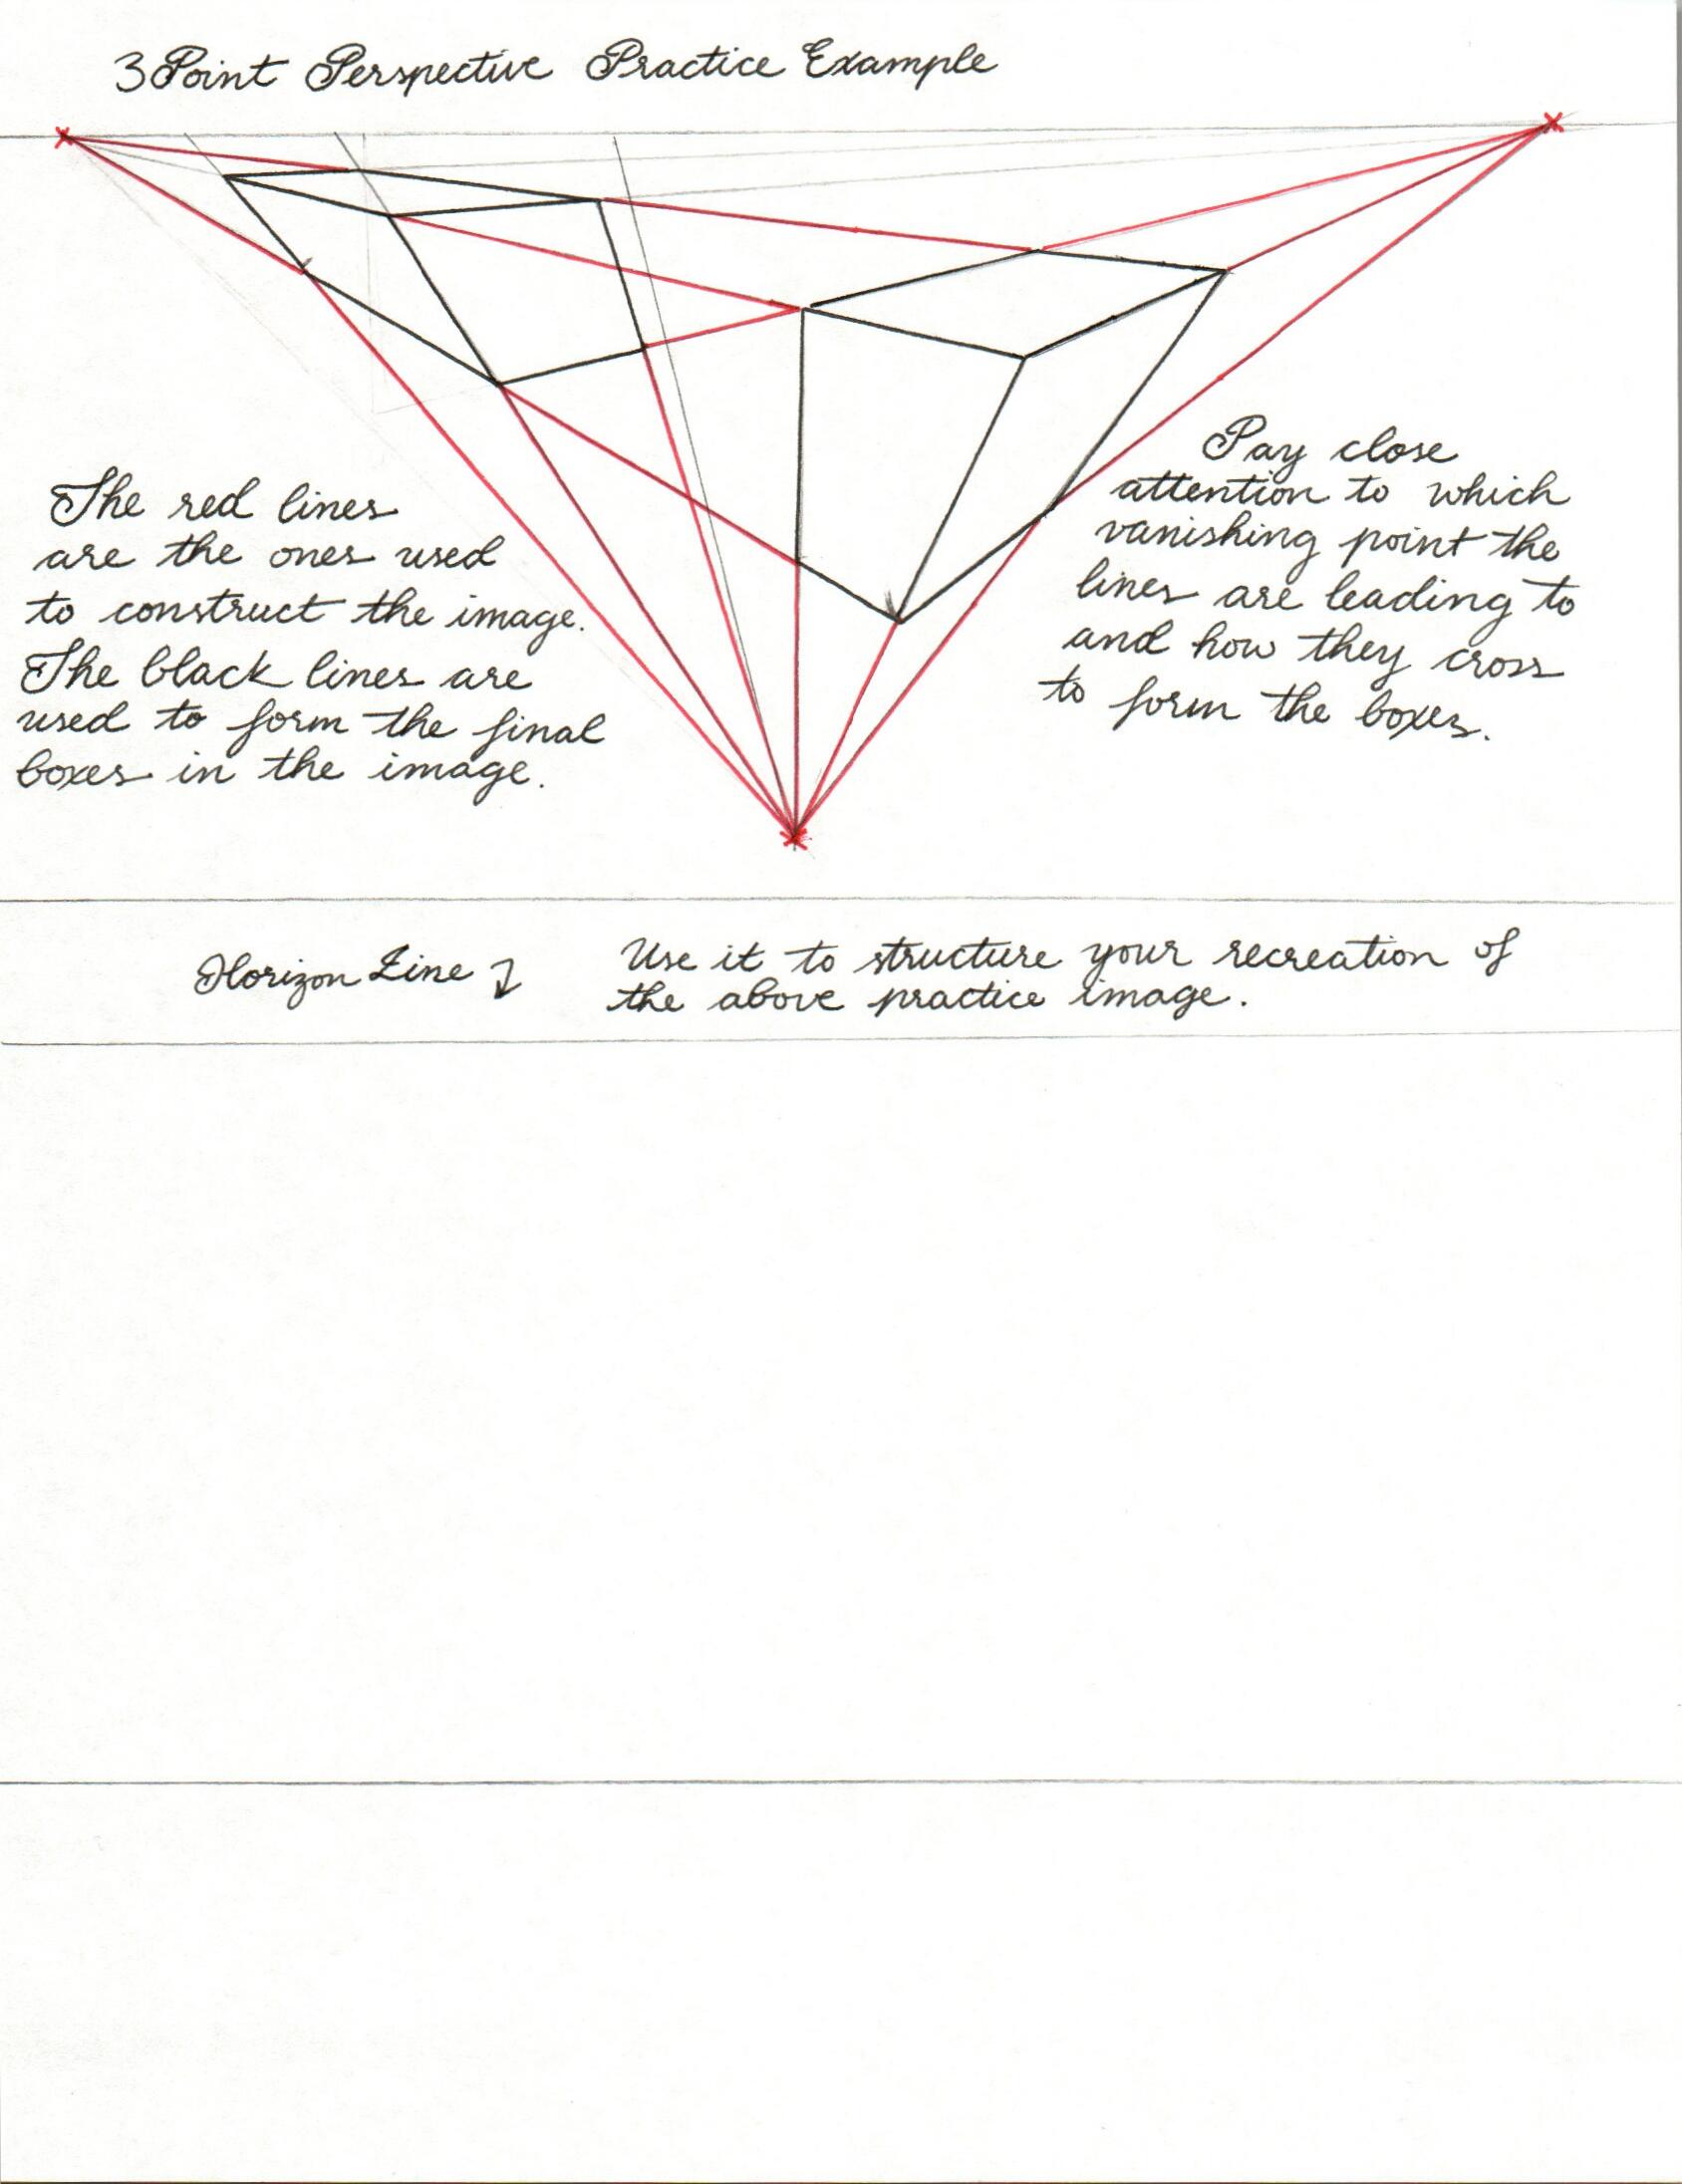 3 Point Perspective Practice Example
The red lines
are the ones used
to construct the image.
The black lines are
used to form the final
boxes in the image.
Pay close
attention to which
vanishing point the
lines are leading to
and how they cross
to form the boxes.
Horizon Line
Use it to structure your recreation of
the above practice image.